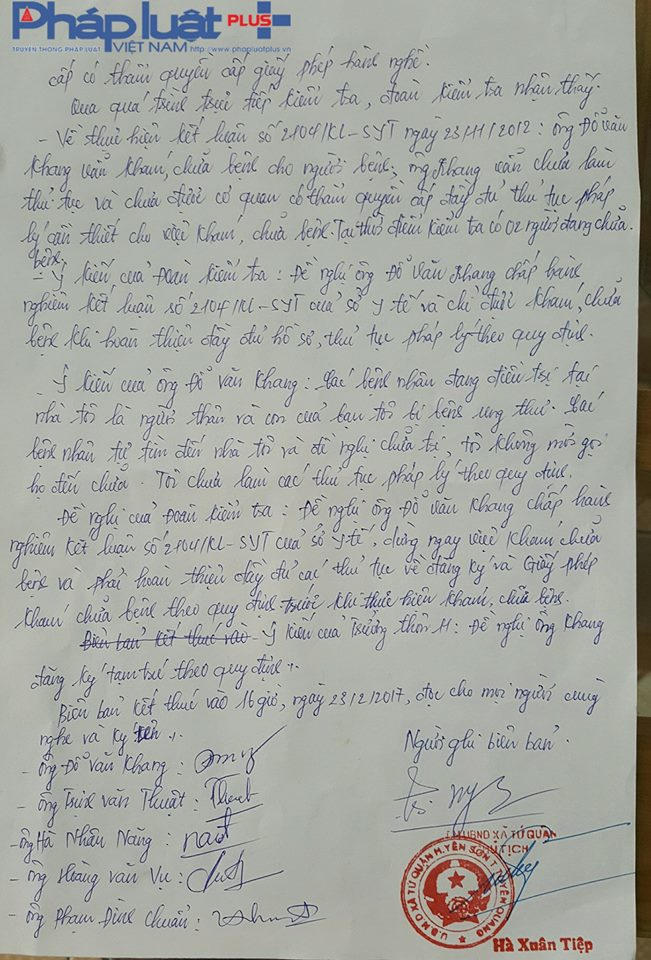 Pháp luật PLUS
TRUYỀN THÔNG PHÁP LUẬT VIỆT NAM http://www.phapluatplus.vn
cấp có thẩm quyền cấp giấy phép hành nghề.
Qua quá trình trực tiếp kiểm tra, đoàn kiểm tra nhận thấy.
- Về thực hiện kết luận số 2104/KL-SYT ngày 23/11/2012: ông Đỗ Văn
Khang vẫn khám, chữa bệnh cho người bệnh; ông Khang vẫn chưa làm
thủ tục và chưa được cơ quan có thẩm quyền cấp đầy đủ thủ tục pháp
lý cần thiết cho việc khám, chữa bệnh. Tại thời điểm kiểm tra có 02 người đang chữa
bệnh.
- Ý kiến của Đoàn kiểm tra: Đề nghị ông Đỗ Văn Khang chấp hành
nghiêm kết luận số 2104/KL-SYT của sở y tế và chỉ được khám, chữa
bệnh khi hoàn thiện đầy đủ hồ sơ, thủ tục pháp lý theo quy định.
- Ý kiến của ông Đỗ Văn Khang: Các bệnh nhân đang điều trị tại
nhà tôi là người thân và con của bạn tôi bị bệnh ung thư. Các
bệnh nhân tự tìm đến nhà tôi và đề nghị chữa trị, tôi không mời gọi
họ đến chữa. Tôi chưa làm các thủ tục pháp lý theo quy định.
Đề nghị của Đoàn kiểm tra: Đề nghị ông Đỗ Văn Khang chấp hành
nghiêm kết luận số 2104/KL-SYT của sở y tế, dừng ngay việc khám, chữa
bệnh và phải hoàn thiện đầy đủ các thủ tục về đăng ký và Giấy phép
khám chữa bệnh theo quy định trước khi thực hiện khám, chữa bệnh.
Biên bản kết thúc vào - Ý kiến của Trưởng thôn 11: Đề nghị ông Khang
đăng ký tạm trú theo quy định.
Biên bản kết thúc vào 16 giờ, ngày 23/2/2017, đọc cho mọi người cùng
nghe và ký tên.
- ông Đỗ Văn Khang:
Người ghi biên bản.
- ông Trịnh Văn Thuật:
- ông Hà Nhân Năng:
- ông Hoàng Văn Vụ:
- ông Phạm Đình Chuẩn:
TM.UBND XÃ TỨ QUẬN
CHỦ TỊCH
U.B.N.D XÃ TỨ QUẬN H. YÊN SƠN T. TUYÊN QUANG
Hà Xuân Tiệp